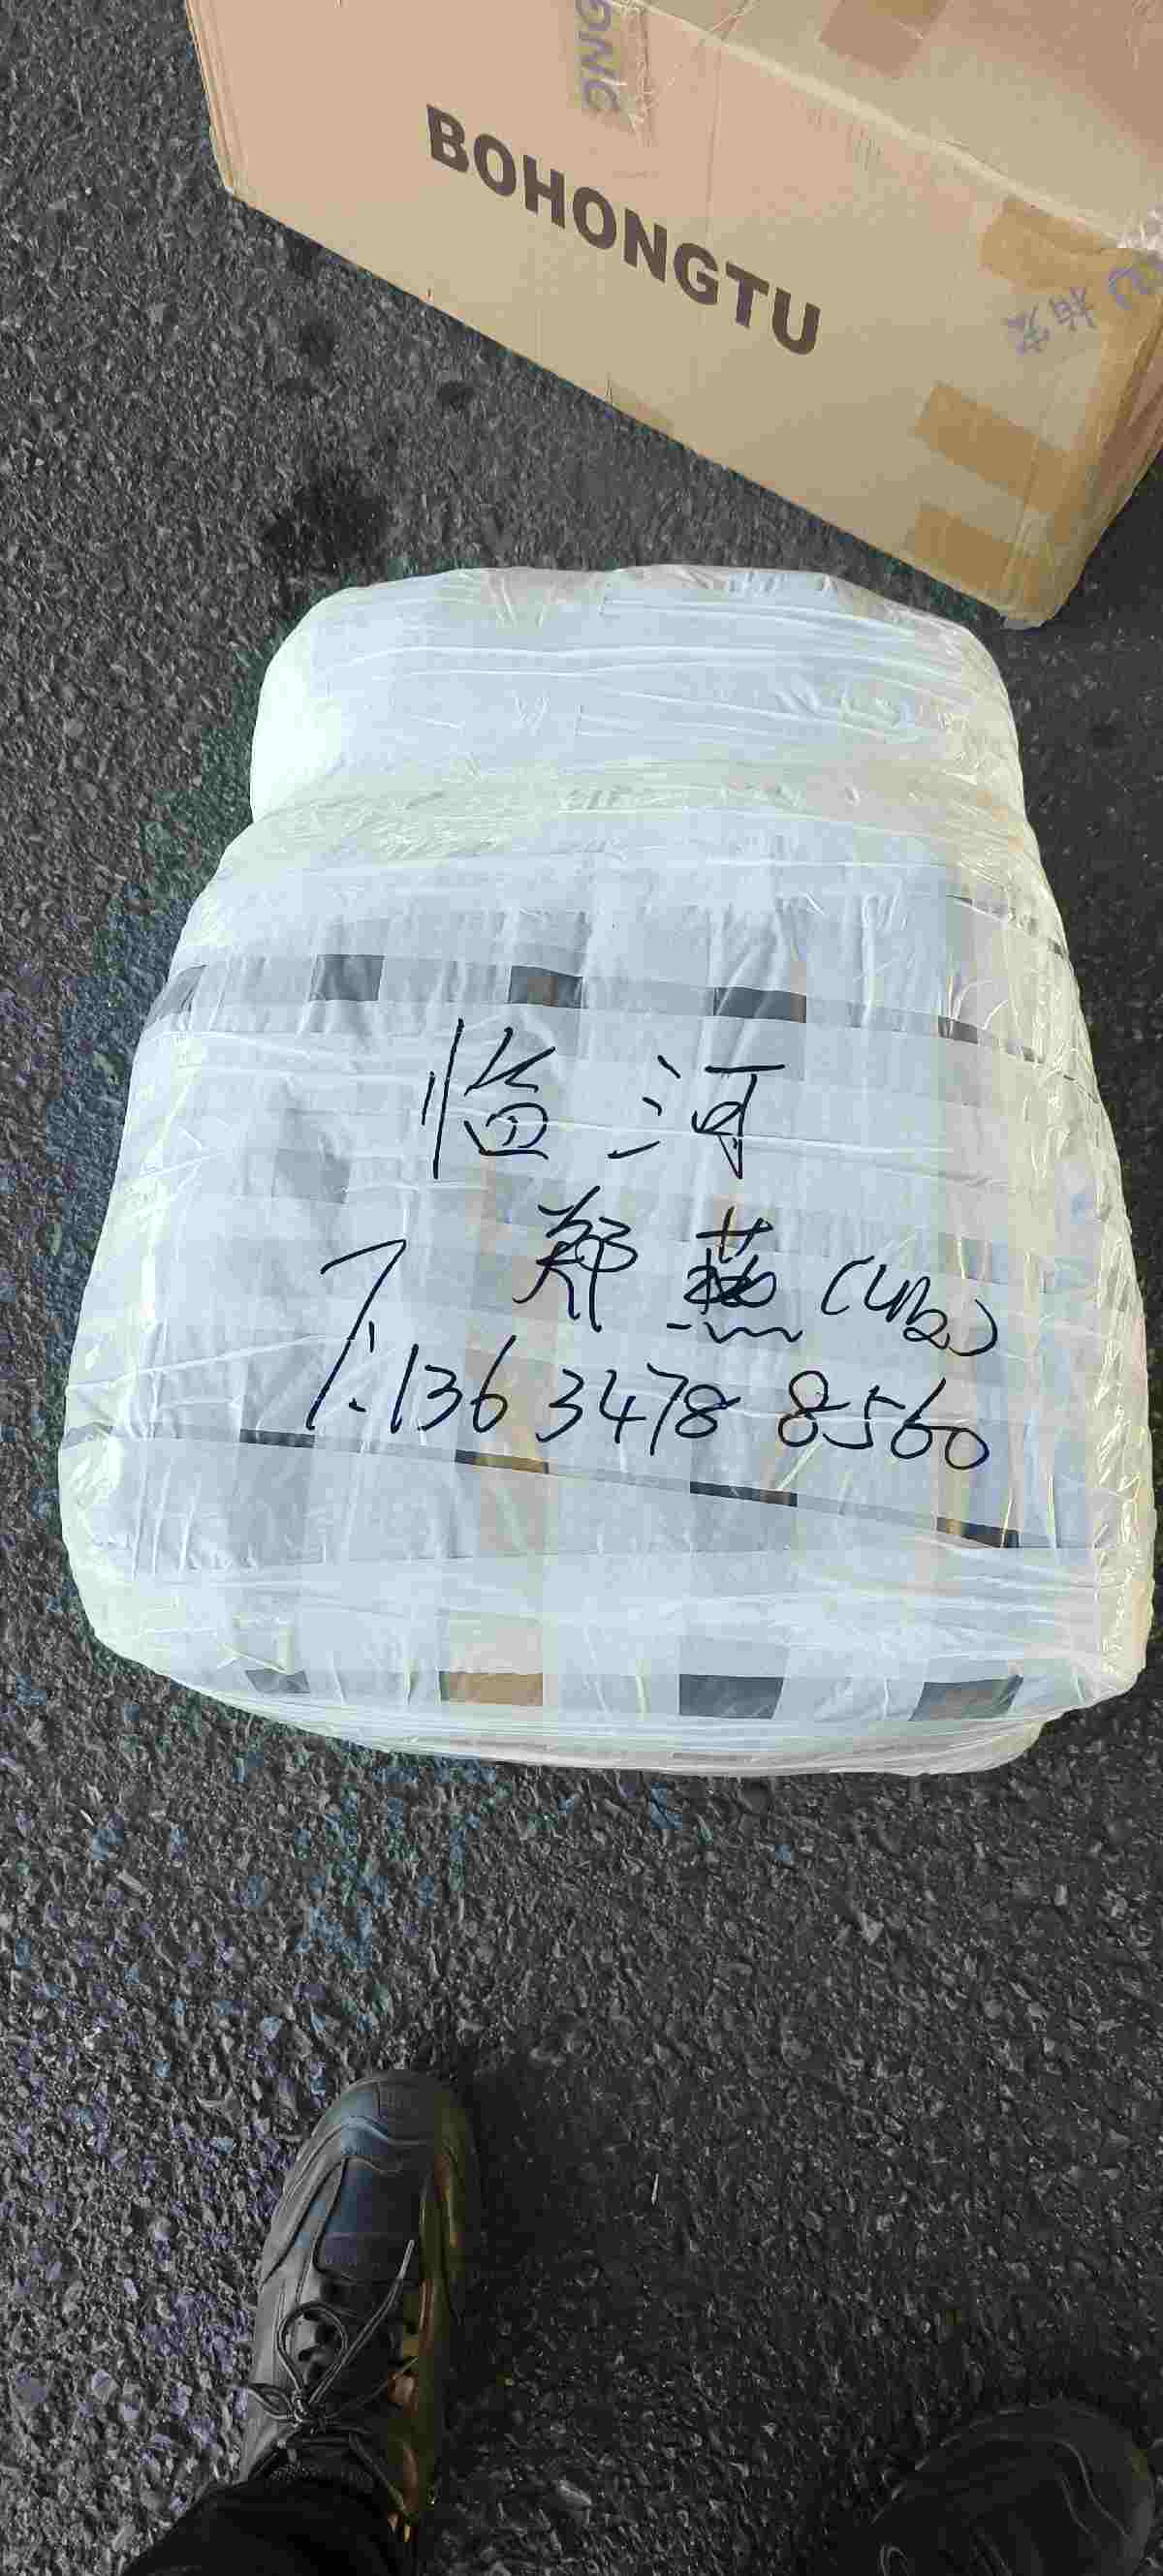 BOHONGTU
临河
郑燕(收)
T:136 3478 8560